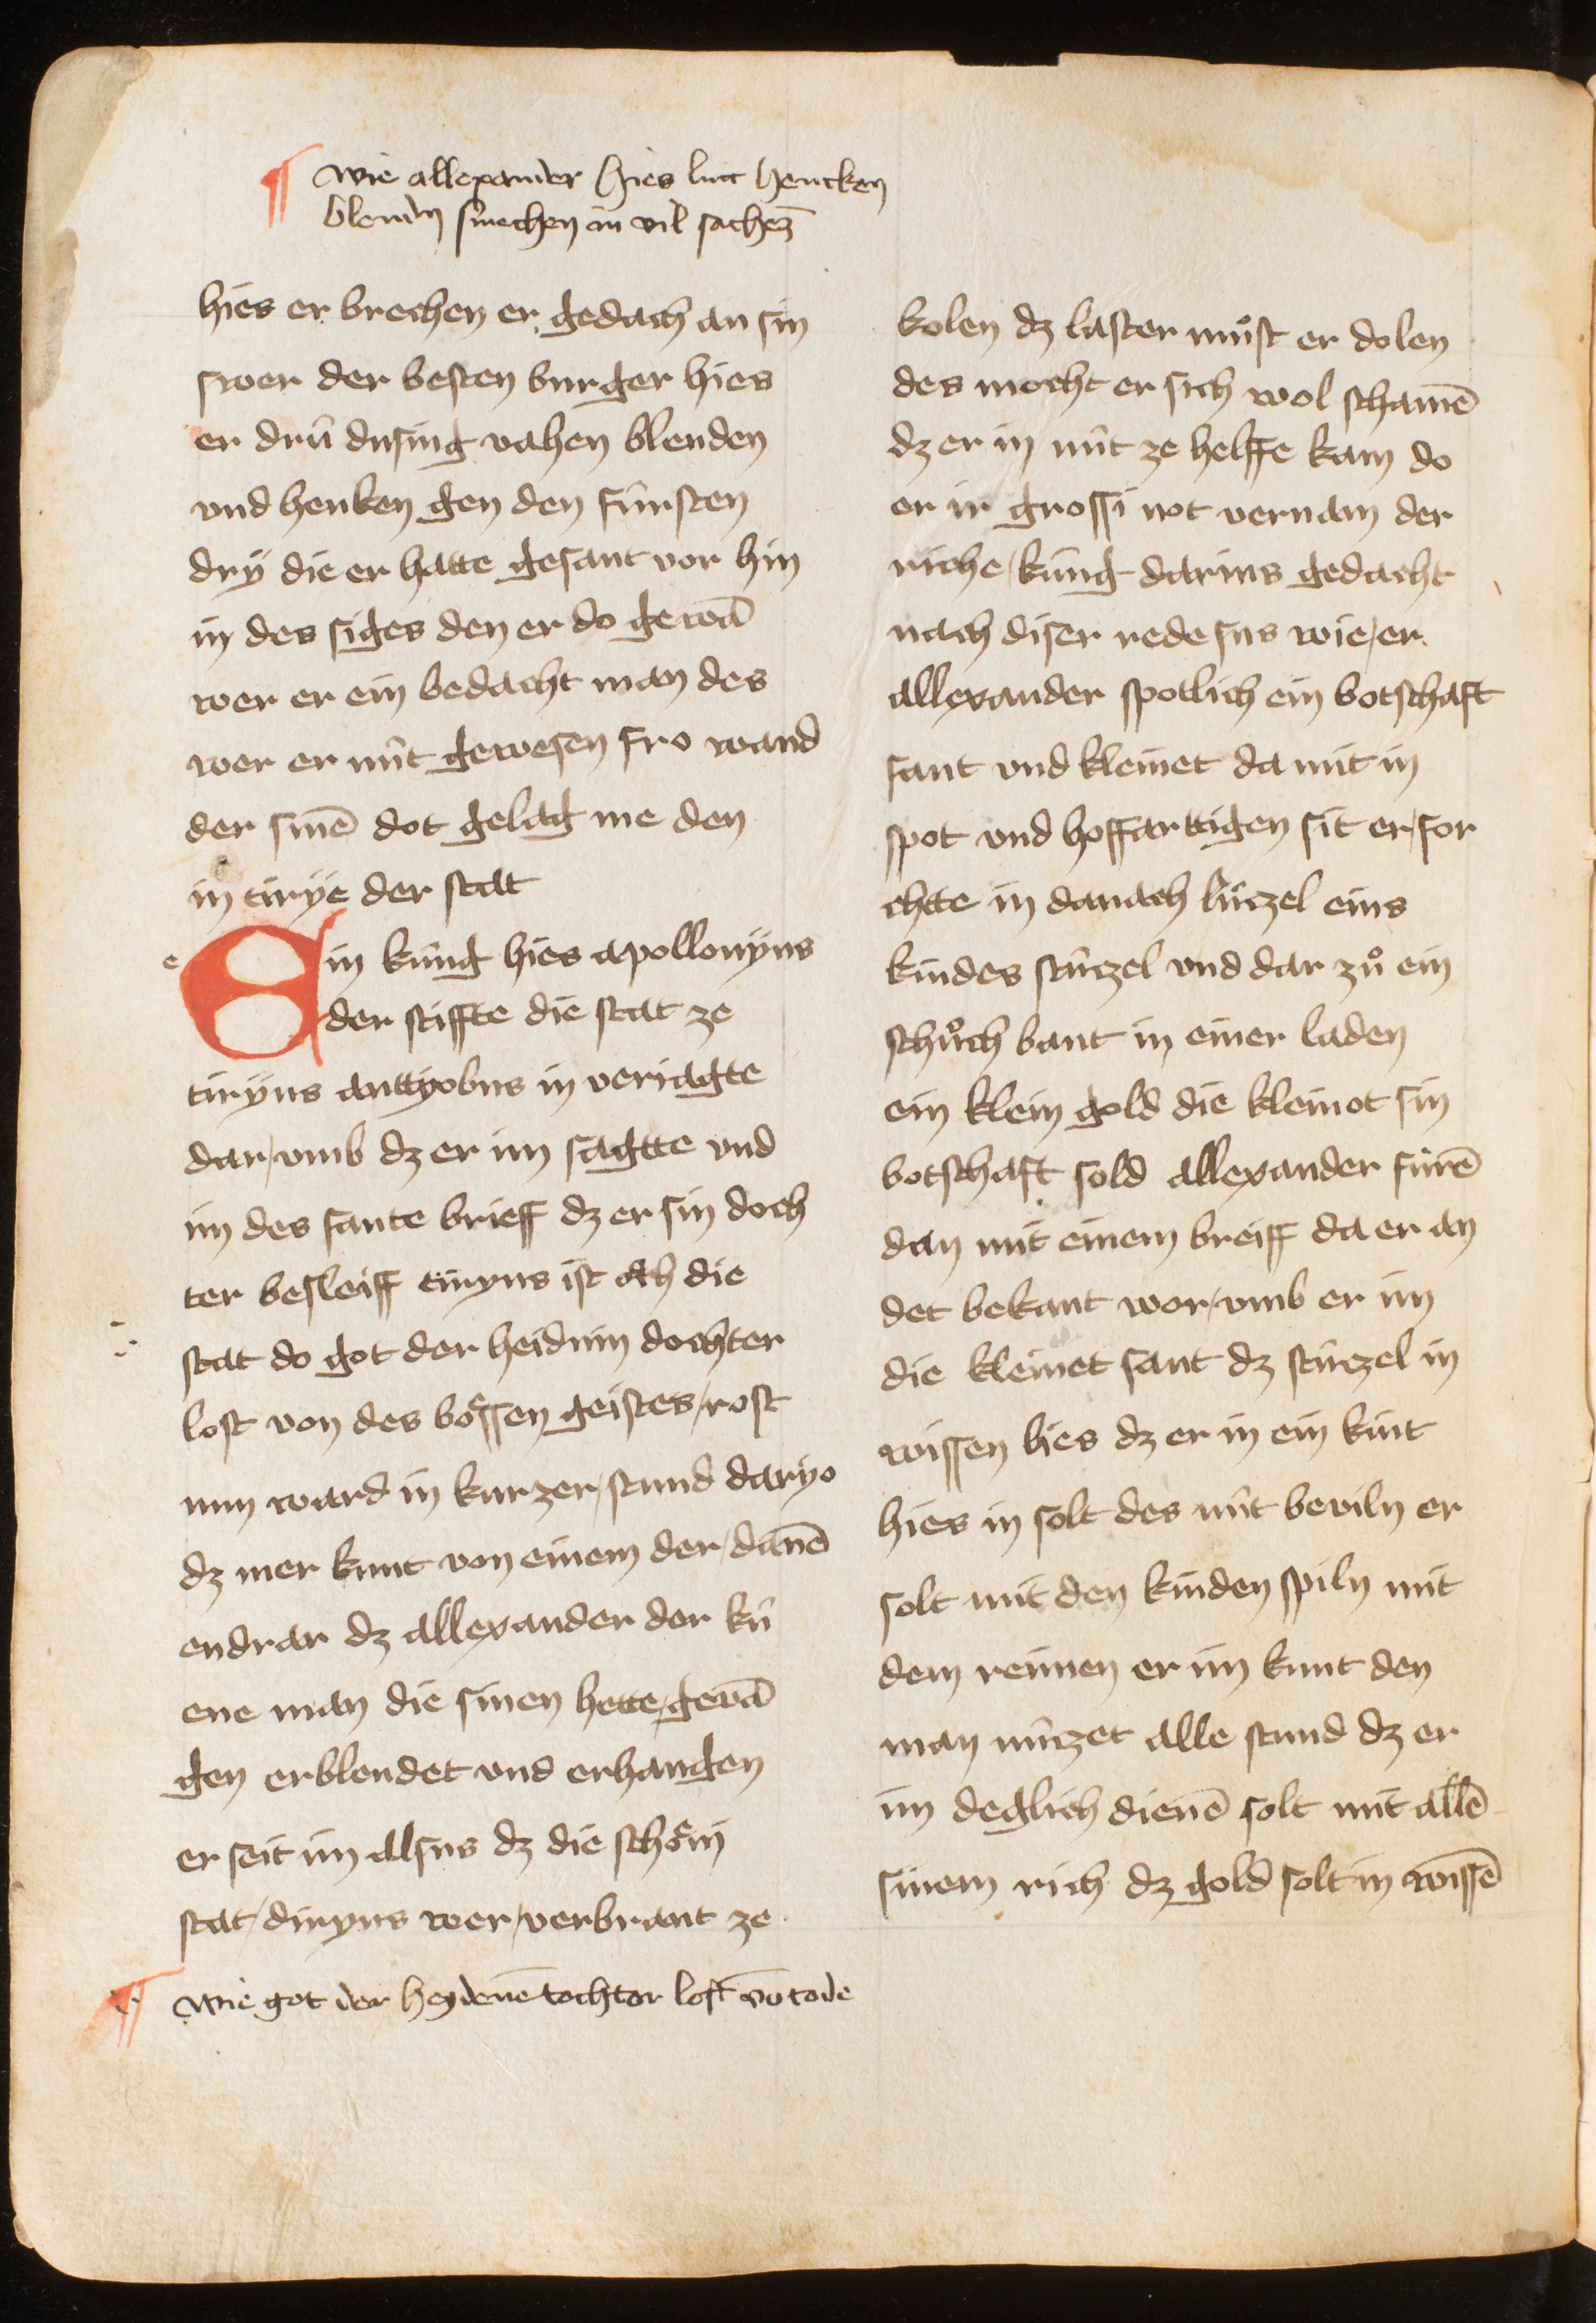 ¶ wie allexander hies lut hencken
blendn smechen in vil sachez̄
hies er brechen er gedach an sin
swer der besten burger hies
er drú dusing vahen blenden
vnd henken gen den fúrsten
drÿ die er hatte gesant vor hin
in des siges den er do gewā
wer er ein bedacht man des
wer er nút gewesen fro wand
der sinē dot gelag me den
in tirÿe der stat
e Ein kúng hies apollonÿus
der stiffte die stat ze
tirÿus anttyobus in veriagte
dar vmb dz er im sagtte vnd
im des sante brieff dz er sin doch
ter besleiff tirÿus ist och die
stat do got der heidnin dochter
lost von des bôssen geistes rost
nun ward in kurzer stund daryo
dz mer kunt von einem der danē
endrar dz allexander der kú
ene man die sinen hette gevā
gen erblendet vnd erhangen
er seit im alsus dz die schôni
stat dirÿus wer verbrant ze
¶ wie got der heydenē tochter lost vō tode
kolen dz laster muͦst er dolen
des mocht er sich wol schamē
dz er in nút ze helffe kam do
er ir grossi not vernam der
riche kúng darius gedacht
nach diser rede sus wie er
allexander spotlich ein botschaft
sant vnd kleinet da mit in
spot vnd hoffarttigen sit er for
chtte in danach lúczel eins
kindes stúrzel vnd dar zuͦ ein
schuͦch bant in einer laden
ein klein gold die kleinot sin
botschaft sold allexander fúrē
dan mit einem breiff da er an
det bekant wor vmb er im
die kleinet sant dz stúrzel in
wissen lies dz er in ein kint
hies in solt des nút beviln er
solt mit den kinden spiln mit
dem reimen er im kunt den
man núzet alle stund dz er
im deglich dienē solt mit allē
sinem rich dz gold solt in wissē